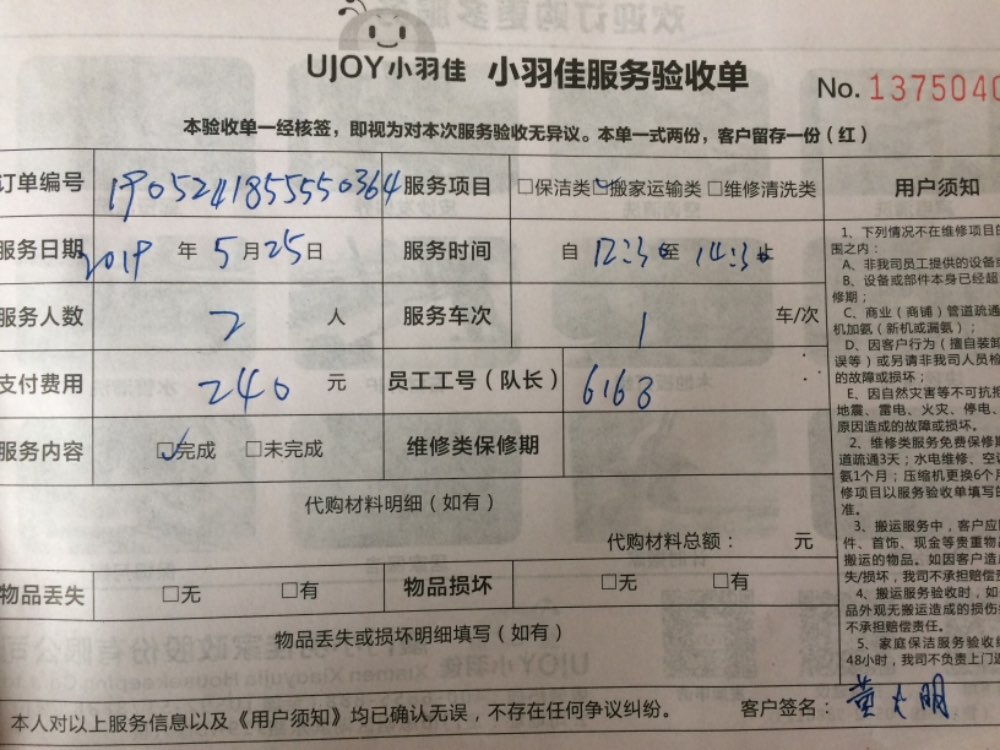 UJOY小羽佳 小羽佳服务验收单
No. 1375040
本验收单一经核签，即视为对本次服务验收无异议。本单一式两份，客户留存一份（红）
订单编号 1905241855550364 服务项目 □保洁类 ☑搬家运输类 □维修清洗类 用户须知
服务日期 2019 年 5 月 25 日 服务时间 自 12:30 至 14:30 止
服务人数 2 人 服务车次 1 车/次
支付费用 240 元 员工工号（队长） 6163
服务内容 ☑完成 □未完成 维修类保修期
代购材料明细（如有）
代购材料总额： 元
物品丢失 □无 □有 物品损坏 □无 □有
物品丢失或损坏明细填写（如有）
1、下列情况不在维修项目的
围之内：
A、非我司员工提供的设备或
B、设备或部件本身已经超
修期；
C、商业（商铺）管道疏通
机加氨（新机或漏氨）；
D、因客户行为（擅自装卸
误等）或另请非我司人员检
的故障或损坏；
E、因自然灾害等不可抗拒
地震、雷电、火灾、停电、
原因造成的故障或损坏。
2、维修类服务免费保修期
道疏通3天；水电维修、空调
氨1个月；压缩机更换6个月
修项目以服务验收单填写的
准。
3、搬运服务中，客户应
件、首饰、现金等贵重物品
搬运的物品。如因客户造
失/损坏，我司不承担赔偿
4、搬运服务验收时，如
品外观无搬运造成的损伤
不承担赔偿责任。
5、家庭保洁服务验收
48小时，我司不负责上门返
本人对以上服务信息以及《用户须知》均已确认无误，不存在任何争议纠纷。 客户签名： 黄大明